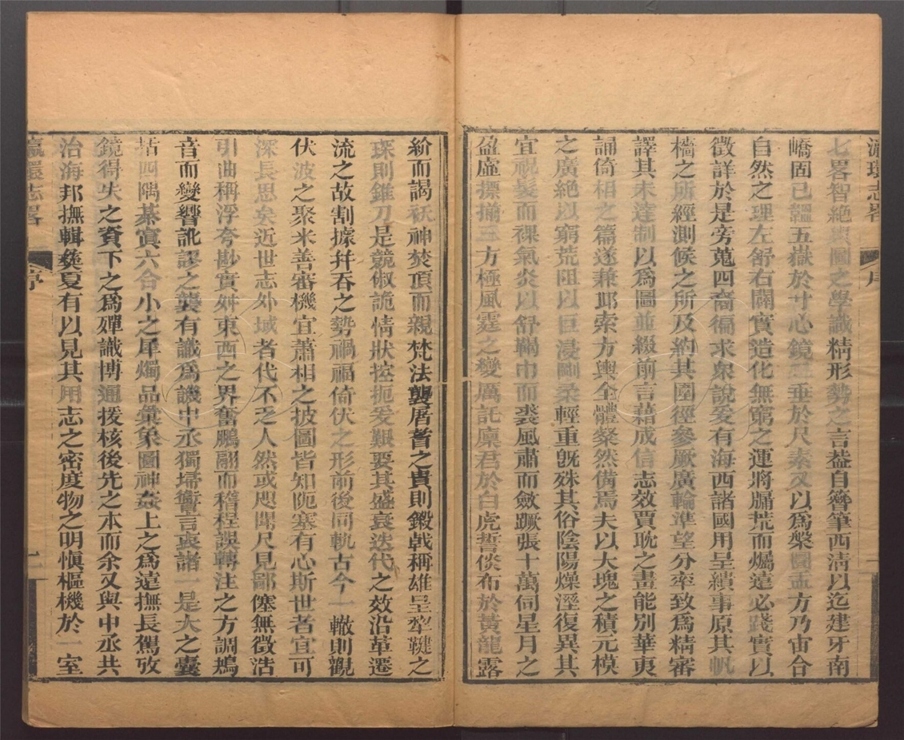 瀛環志畧 序
七畧智絕 圖之學識精形勢之言葢自簪筆西淸以迄建牙南
嶠固已韞五嶽於寸心鏡三垂於尺素又以爲槃 盂方乃宙合
自然之理左舒右闢實造化無窮之運將牖荒而爥遠必踐實以
徵詳於是旁蒐四裔徧求衆說爰有海西諸國用呈繢事原其帆
檣之所經測候之所及約其圍徑參厥廣輪準望分率致爲精審
譯其未達制以爲圖並綴前言藉成信志效賈耽之畫能別華夷
誦倚相之篇遂兼邱索方輿全體粲然備焉夫以大塊之積元模
之廣絕以窮荒阻以巨浸剛柔輕重旣殊其俗陰陽燥溼復異其
宜祝髮而裸氣炎以舒鞨巾而裘風肅而斂蹶張十萬伺星月之
盈虛摽 三方極風霆之變厲託廩君於白虎誓俠布於黃龍露
紒而謁祆神焚頂而親梵法襲屠耆之貴則鍛戟稱雄呈犂鞬之
琛則錐刀是競俶詭情狀控扼爰艱要其盛衰迭代之效沿革遷
流之故割據幷吞之勢禍福倚伏之形前後同軌古今一轍則觀
伏波之聚米善審機宜蕭相之披圖皆知阨塞有心斯世者宜可
深長思矣近世志外域者代不乏人然或咫聞尺見鄙僿無徵活
引曲稱浮夸尠實舛東西之界奮鵬翮而稽程誤轉注之方調鴂
音而變響訛謬之襲有識爲譏中丞獨埽讆言裒諸一是大之囊
括四隅綦實六合小之犀燭品彙象圖神姦上之爲遠撫長駕攷
鏡得失之資下之爲殫識博通援核後先之本而余又與中丞共
治海邦撫輯蕤夏有以見其用志之密度物之明愼樞機於一室
瀛環志畧 序 一